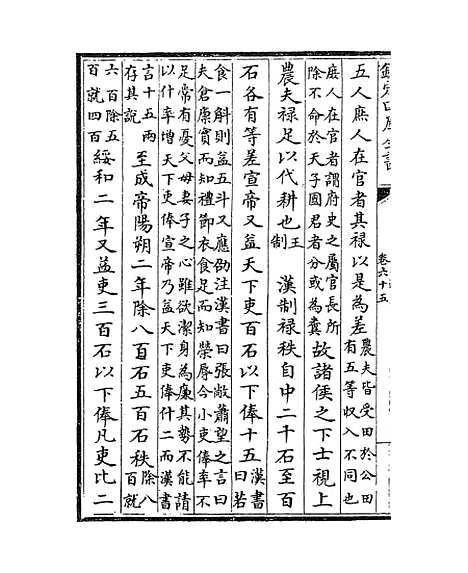 欽定四庫全書
卷六十五
五人庶人在官者其禄以是為差農夫皆受田於公田
有五等収入不同也
庶人在官者謂府史之屬官長所
除不命於天子國君者分或為糞故諸侯之下士視上
農夫禄足以代耕也王
制漢制禄秩自中二千石至百
石各有等差宣帝又益天下吏百石以下俸十五漢書
曰若
食一斛則益五斗又應劭注漢書曰張敞蕭望之言曰
夫倉廩實而知禮節衣食足而知榮辱今小吏俸率不
足常有憂父母妻子之心雖欲潔身為廉其勢不能請
以什率增天下吏俸宣帝乃益天下吏俸什二而漢書
言十五兩
存其說至成帝陽朔二年除八百石五百石秩除八
百就
六百除五
百就四百綏和二年又益吏三百石以下俸凡吏比二